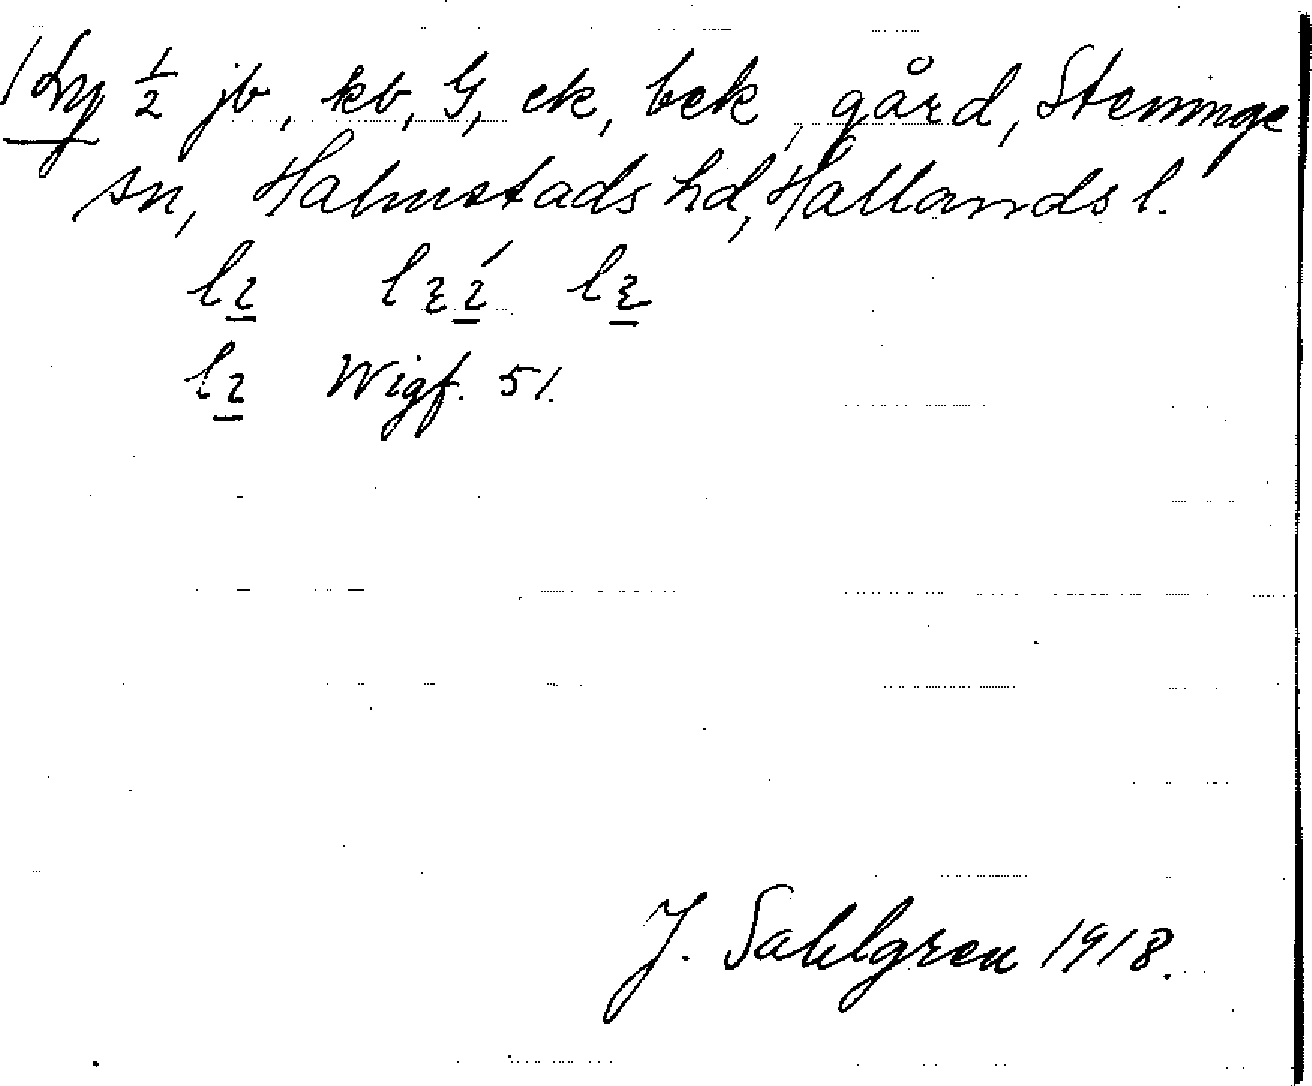 1 Ly 1/2 jb, kb, G, ek, bek, gård, Steninge
sn, Halmstads hd, Hallands l.
Wigf. 51.
J. Sahlgren 1918.